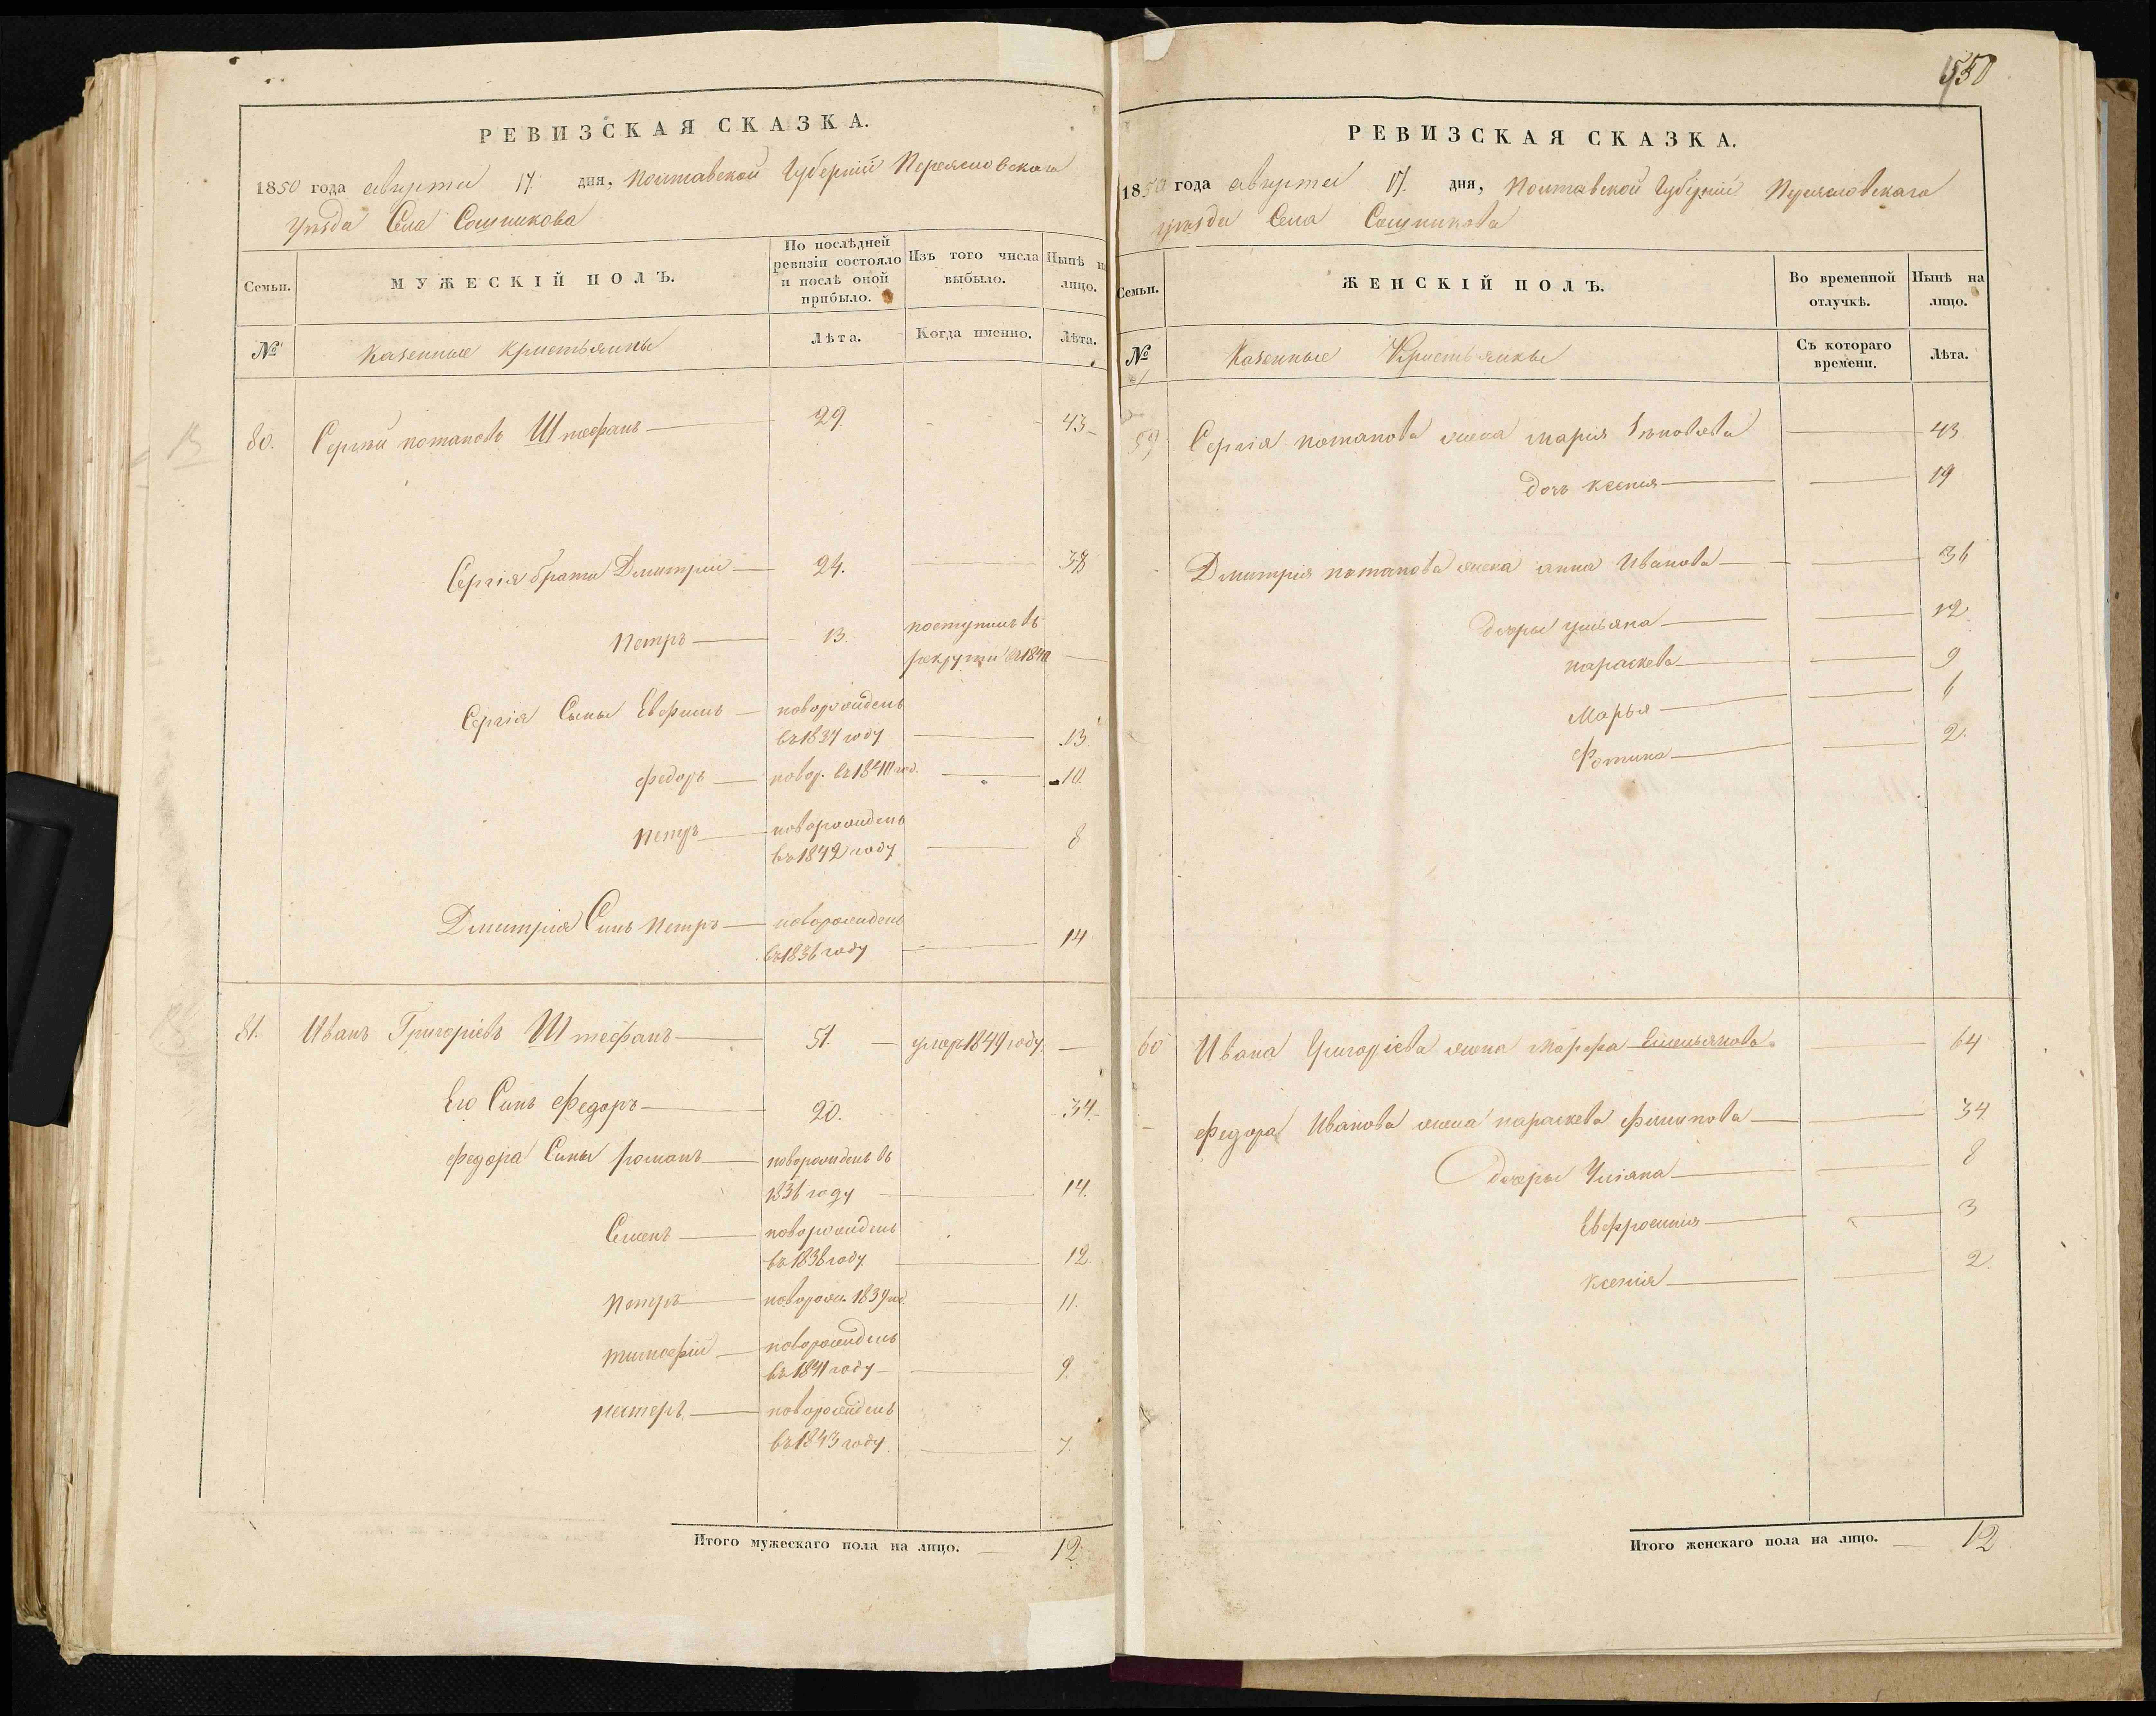 РЕВИЗСКАЯ СКАЗКА.
1850 года августа 17. дня, Полтавской Губерніи Переясловскаго
уѣзда Села Сошникова
Семьи.
МУЖЕСКІЙ ПОЛЪ.
По послѣдней ревизіи состояло и послѣ оной прибыло.
Изъ того числа выбыло.
Нынѣ на лицо.
№
Казенные крестьянны
Лѣта.
Когда именно.
Лѣта.
80. Сергѣй потаповъ Штефанъ 29 43
Сергія братъ Дмитрій 24. 38
Петръ 13. поступилъ въ
рекруты въ 1840
Сергія Сыны Евфимъ новорожденъ
въ 1837 году 13.
федоръ новор. въ 1840 год. 10.
петръ новорожденъ
въ 1842 году 8
Дмитрія Синъ петръ новорожденъ
въ 1836 году 14
81. Иванъ Григоріевъ Штефанъ 51. умер 1849 году.
Его Синъ федоръ 20. 34.
федора Сины романъ новорожденъ въ
1836 году 14.
Семенъ новорожденъ
въ 1838 году 12.
петръ новорож. 1839 год. 11.
тимофій новорожденъ
въ 1841 году 9.
нестеръ новорожденъ
въ 1843 году. 7.
Итого мужескаго пола на лицо. 12
550
РЕВИЗСКАЯ СКАЗКА.
1850 года августа 17. дня, Полтавской Губерніи Переясловскаго
уѣзда Села Сошникова
Семьи.
ЖЕНСКІЙ ПОЛЪ.
Во временной отлучкѣ.
Нынѣ на лицо.
№
Казенные Крестьянкы
Съ котораго времени.
Лѣта.
59 Сергія потапова жена марія 43
дочь ксенія 19
Дмитрія потапова жена анна Иванова 36
дочеры ульяна 12.
параскева 9
Марья 6
Фотина 2.
60 Ивана Григоріева жена Марфа Емельянова 64
федора Иванова жена параскева филипова 34
дочеры Уліяна 8
Евфросинія 3
Ксенія 2.
Итого женскаго пола на лицо. 12